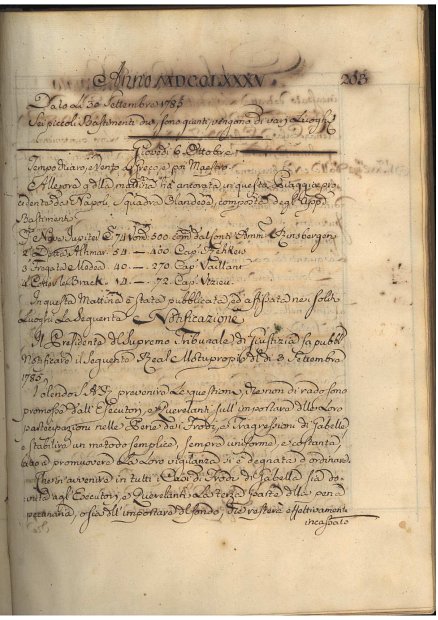 Anno MDCCLXXXV 203
Dato li 30 Settembre 1785
Sei piccoli Bastimenti che sono giunti, vengono da varj Luoghi
Giovedì 6 Ottobre
Tempo chiaro, e Vento a Greco, e poi Maestro
Allegra della mattina ha ancorata in questa Spiaggia pro
cedente da Napoli Squadra Olandese, composta degl'appo
Bastimenti
Nave Jupiter C. 74 500 Com. dal Kinsbergen
2 54 — 400 Cap.
3 Fregata Medea 40 — 270 Cap. Vaillant
4 Cotter Brack 14 — 72 Cap.
In questa Mattina è stata pubblicata, ed affissata nei soliti
Luoghi la seguente Notificazione
Il Presidente del Supremo Tribunale di Giustizia fa pubb
Notificare il seguente Real Motuproprio del dì 3 Settembre
1785
Volendo S.A.R. prevenire le questioni, che non di rado sono
promosse dall'Esecutori, e Querelanti sull'importare della Loro
partecipazione nelle Pene dei Frodi, e Trasgressioni di Gabelle
e stabilire un metodo semplice, sempre uniforme, e costante
atto a promuovere la Loro vigilanza si è degnata d'ordinare
Che in avvenire in tutti i Casi di Frodi di Gabella sia do
vuta agl'Esecutori, e Querelanti la terza parte della pena
pecuniaria, o sia dell'importare del fondo, che resterà effettivamente
incassato